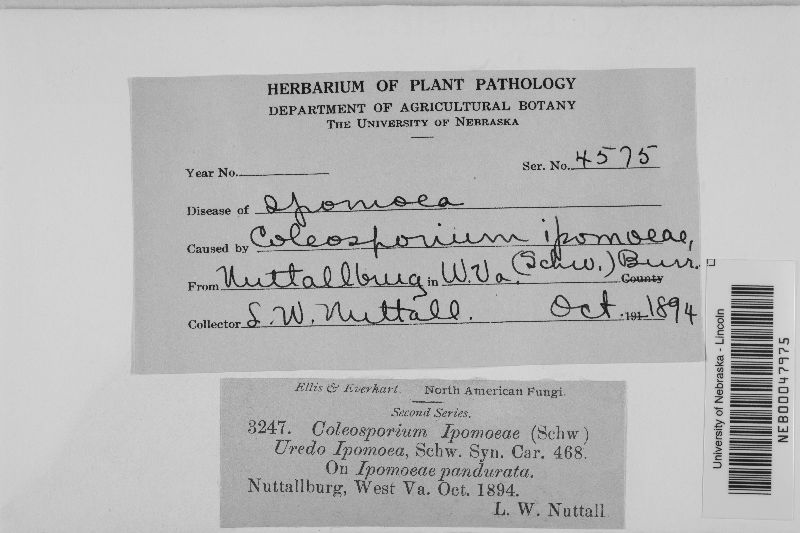 HERBARIUM OF PLANT PATHOLOGY
DEPARTMENT OF AGRICULTURAL BOTANY
THE UNIVERSITY OF NEBRASKA
Year No. Ser. No. 4575
Disease of Ipomoea
Caused by Coleosporium ipomoeae,
(Schw.) Burr.
From Nuttallburg in W. Va. County
Collector L. W. Nuttall. Oct. 191 1894
Ellis & Everhart. North American Fungi.
Second Series.
3247. Coleosporium Ipomoeae (Schw)
Uredo Ipomoea, Schw. Syn. Car. 468.
On Ipomoeae pandurata.
Nuttallburg, West Va. Oct. 1894.
L. W. Nuttall
University of Nebraska - Lincoln
NEB00047975